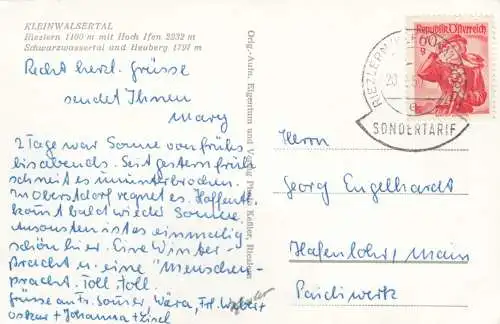 KLEINWALSERTAL
Riezlern 1100 m mit Hoch Ifen 2232 m
Schwarzwassertal und Heuberg 1797 m
Recht herzl. Grüsse
sendet Ihnen
Mary
2 Tage war Sonne von früh
bis abends. Seit gestern früh
schneit es ununterbrochen.
In Oberstdorf regnet es. Hoffentl.
kommt bald wieder Sonne.
Ansonsten ist es einmalig
schön hier. Eine Winter-
pracht u. eine "Menschen-
pracht. Toll, toll.
Grüsse an Fr. Wära, Frl. Weber +
Oskar + Johanna +
Orig.-Aufn. Eigentum und Verlag Photo Keßler, Riezlern
Republik Österreich
60
g
RIEZLERN
20
e
SONDERTARIF
Herrn
Georg Engelhardt
Hafenlohr/Main
Paidiwerk